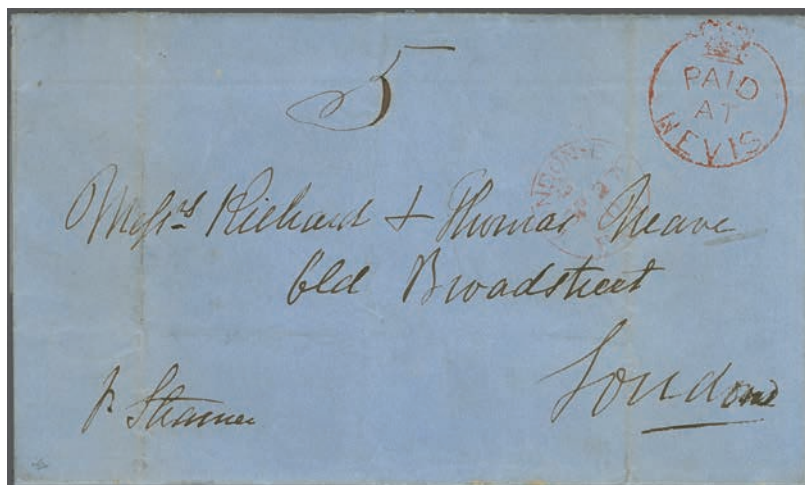 5
PAID
AT
NEVIS
Messrs Richard & Thomas Neave
Old Broadstreet
London
p. Steamer